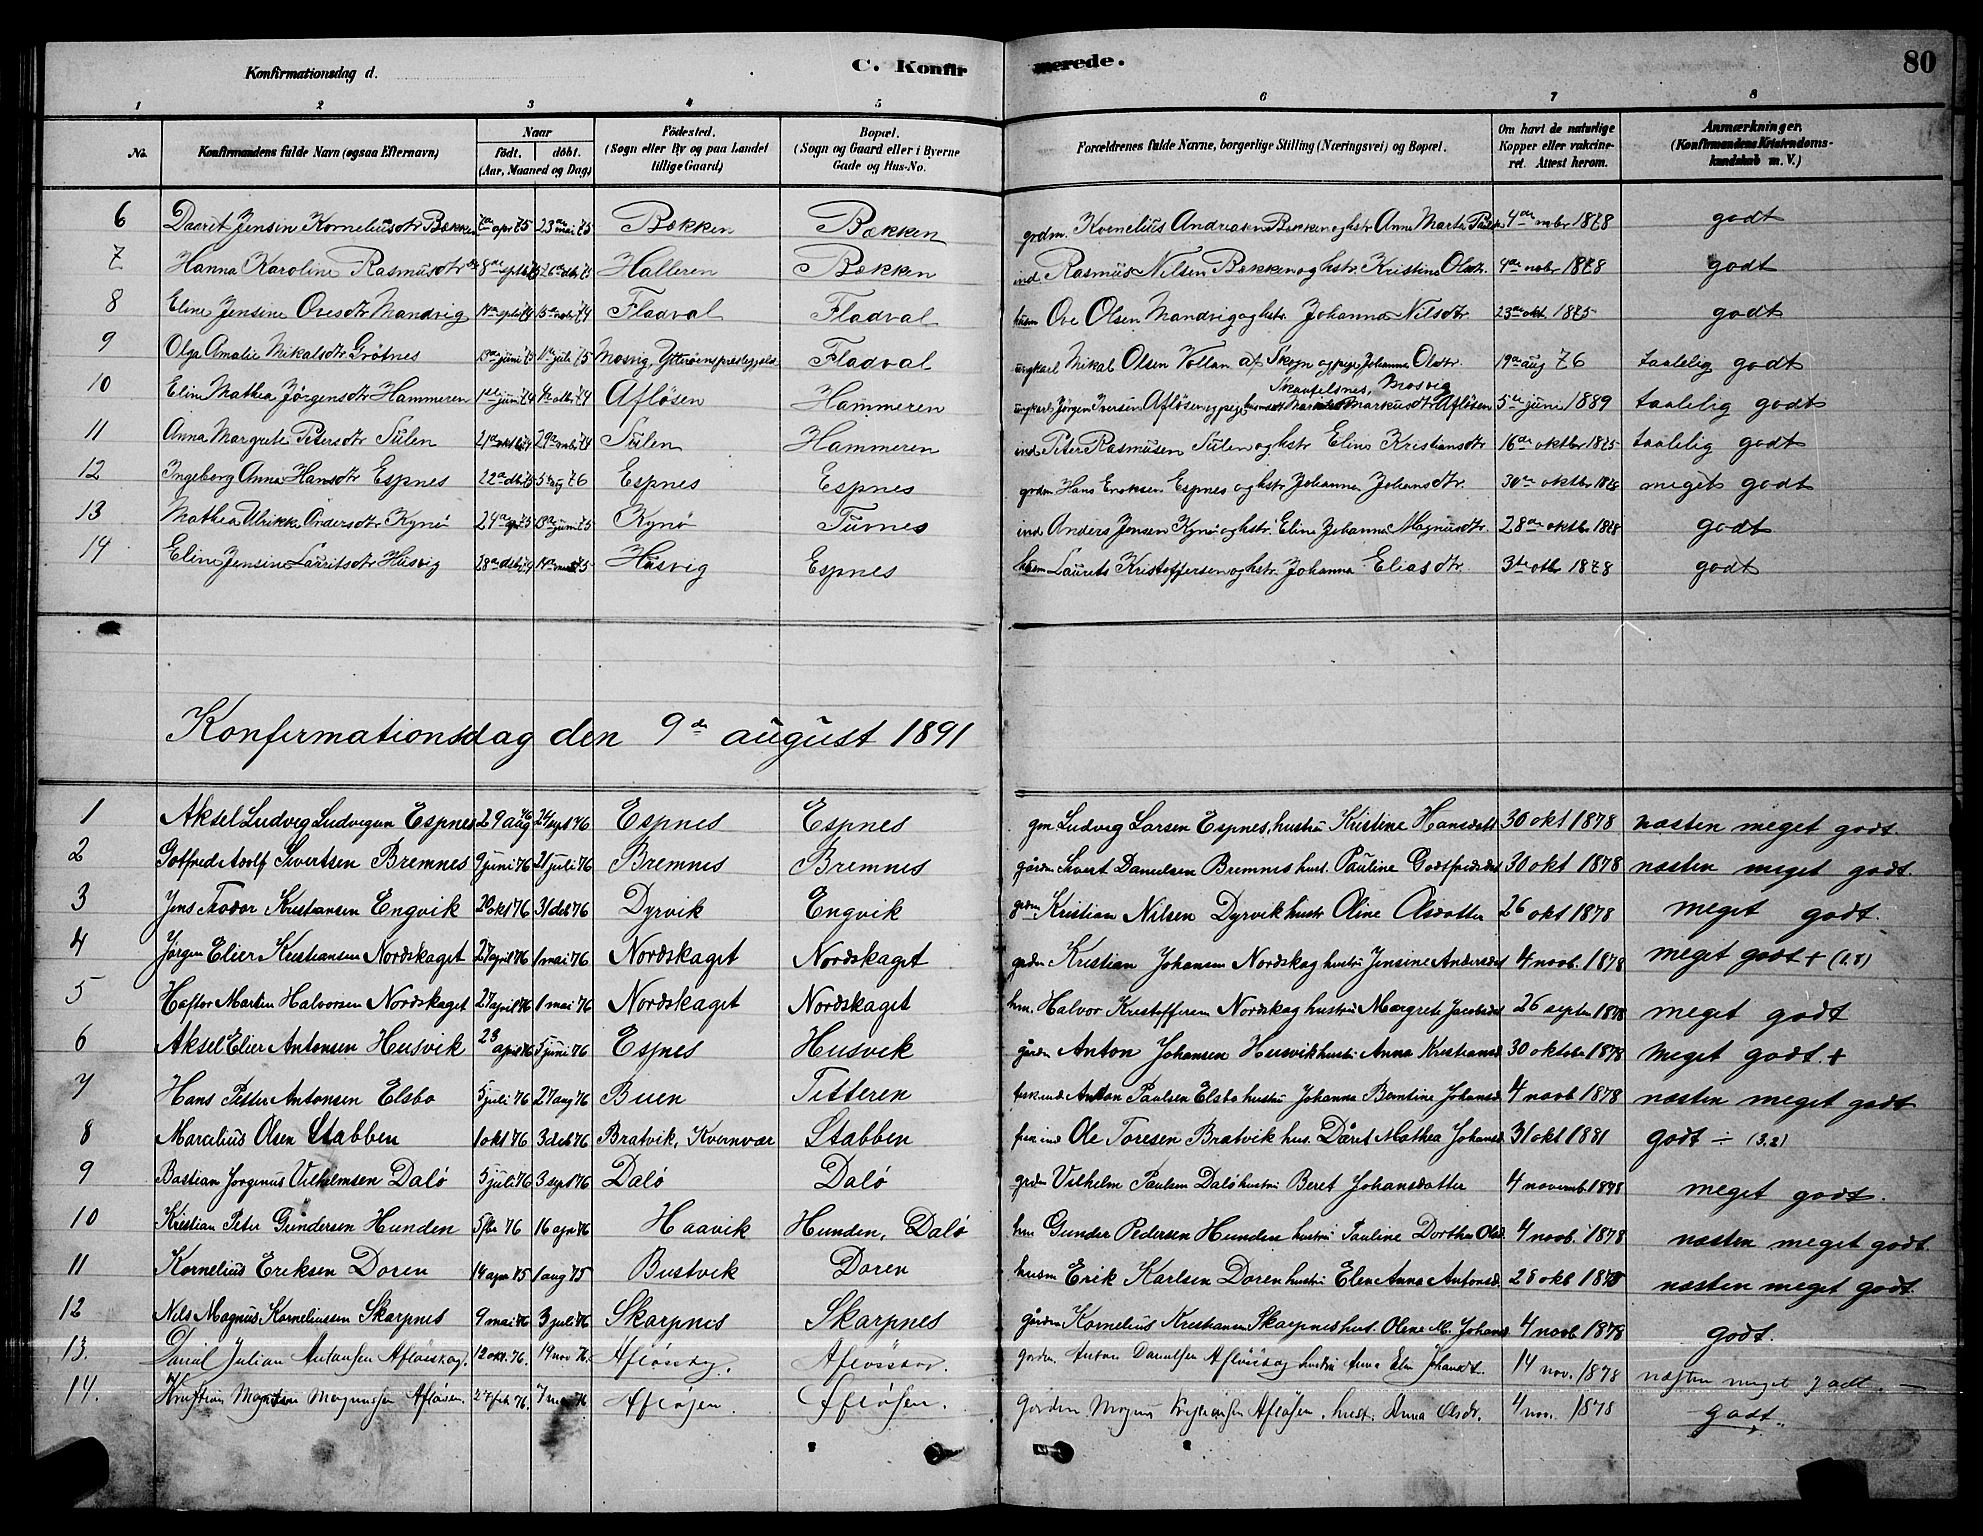 Konfirmationsdag d.
C. Konfirmerede.
80
1 2 3 4 5 6 7 8
No. Konfirmandens fulde Navn (ogsaa Efternavn) Naar födt. döbt. (Aar, Maaned og Dag) Födested. (Sogn eller By og paa Landet tillige Gaard) Bopæl. (Sogn og Gaard eller i Byerne Gade og Hus-No. Forældrenes fulde Navne, borgerlige Stilling (Næringsvei) og Bopæl. Om havt de naturlige Kopper eller vakcineret. Attest herom. Anmærkninger. (Konfirmandens Kristendomskundskab m. V.)
6 Daaret Jensine Korneliusdtr Bækken 23de mai 75 Bækken Bækken grdm. Kornelius Andreasen Bækken og hstr. Anne Marta 4de nobr 1878 godt
7 Hanna Karoline Rasmusdtr Halleren Bækken ind Rasmus Nilsen Bækken og hstr. Kristine Olsdtr. 4de nobr 1878 godt
8 Eline Jensine Ovesdtr Mandvig Fladval Fladval husm Ove Olsen Mandvig og hstr. Johanna Nilsdtr. 23de okt 1875 godt
9 Olga Amalie Mikalsdtr Grötnes Mosvig, Ytteröens prestegjeld Fladval ungkarl Mikal Olsen Vollan af Skogn og pige Johanna Olsdtr. 19de aug 76 taalelig godt
10 Eline Mathea Jörgensdtr Hammeren Aflösen Hammeren ungkarl Jörgen Iversen Aflösen og pige Markusdtr Aflösen 5te juni 1889 taalelig godt
11 Anna Margrete Petersdtr Tülen Tülen Hammeren ind Peter Rasmusen Tülen og hstr Eline Kristiansdtr 16de oktbr 1875 taalelig godt
12 Ingeborg Anna Hansdtr Espnes Espnes Espnes grdm Hans Eriksen Espnes og hstr. Johanna Johansdtr. 30te oktbr 1878 meget godt
13 Mathea Ulrikke Andersdtr Kynö Kynö Turnes ind Anders Jensen Kynö og hstr. Eline Johanna Magnusdtr. 28de oktbr 1878 godt
14 Eline Jensine Lauritsdtr Husvig Husvig Espnes husm Laurits Kristoffersen og hstr. Johanna Eliasdtr. 3te otbr 1878 godt
Konfirmationsdag den 9de august 1891
1 Aksel Ludvig Ludvigsen Espnes 29 aug 76 24 sept 76 Espnes Espnes gm Ludvig Larsen Espnes, hustru Kristine Hansdatt 30 okt 1878 næsten meget godt.
2 Gotfred Adolf Sivertsen Bremnes 9 juni 76 21 juli 76 Bremnes Bremnes gårdm Sivert Danielsen Bremnes hust. Pauline Godtfredsd 30 okt 1878 næsten meget godt.
3 Jens Teodor Kristiansen Engvik 20 okt 76 31 deb 76 Dyrvik Engvik grdm Kristian Nilsen Dyrvik hustr Oline Olsdatter 26 okt 1878 meget godt.
4 Jörgen Elier Kristiansen Nordskaget 27 april 76 1 mai 76 Nordskaget Nordskaget grdm Kristian Johansen Nordskag hustru Jensine Andersdat 4 novb. 1878 meget godt + (1.8)
5 Haftor Martin Halvorsen Nordskaget 27 april 76 1 mai 76 Nordskaget Nordskaget hm. Halvor Kristoffersen Nordskag hustru Margrete Jacobsdat 26 septem 1878 meget godt
6 Aksel Elier Antonsen Husvik 23 april 76 5 juni 76 Espnes Husvik gårdm Anton Johansen Husvik hustru Anna Kristiansd. 30 oktober 1878 meget godt. +
7 Hans Petter Antonsen Elsbo 5 juli 76 27 aug 76 Buen Titteren Anton Paulsen Elsbo hustru Johanna Berntine Johansd 4 novb 1878 næsten meget godt
8 Marcelius Olsen Stabben 1 okt 76 3 deb 76 Bratvik, Kvernvær Stabben Ole Toresen Bratvik hus. Dåret Mathea Johansd. 31 okt 1881 godt ÷ (3.2)
9 Bastian Jorgenus Vilhelmsen Dalö 5 juli 76 3 sept 76 Dalö Dalö grdm Vilhelm Paulsen Dalö hustru Beret Johansdatter 4 novemb. 1878 meget godt.
10 Kristian Peter Gundersen Hunden 5 76 16 apr 76 Haavik Hunden, Dalö hm Gunder Pedersen Hunden hustru Pauline Dorthea Olsd. 4 novb. 1878 næsten meget godt.
11 Kornelius Eriksen Doren 14 apr 75 1 aug 75 Bustvik Doren husm Erik Karlsen Doren hustru Elen Anna Antonsd. 28 okb 1878 næsten meget godt.
12 Nils Magnus Korneliussen Skarpnes 9 mai 76 3 juli 76 Skarpnes Skarpnes gårdm Kornelius Kristiansen Skarpnes hus. Olene M. Johansd 4 novb 1878 godt.
13. Danial Julian Antonsen Aflösskag. 12 okt. 76. 19 nov 76. Aflösskag. Aflösskag. gårdm. Anton Danielsen Aflösskag hustru Anna Elen Johansdt. 14 nov. 1878 næsten meget godt. —
14. Kristian Magnussen Aflösen. 27 feb 76. 7 76 Aflösen. Aflösen. gårdm. Magnus Kristiansen Aflösen. hust. Anna Olsdt. 4 nov. 1878 godt.